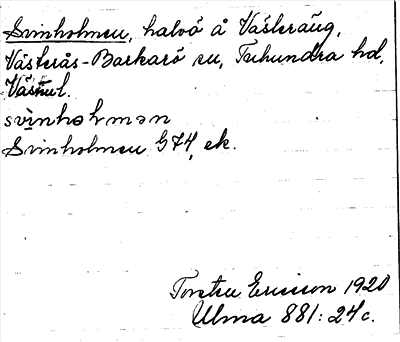 Svinholmen, halvö å Västeräng,
Västerås-Barkarö sn, Tuhundra hd,
Väsml.
svìnhəlmən
Svinholmen G74, ek.
Torsten Ericsson 1920
Ulma 881:24c.